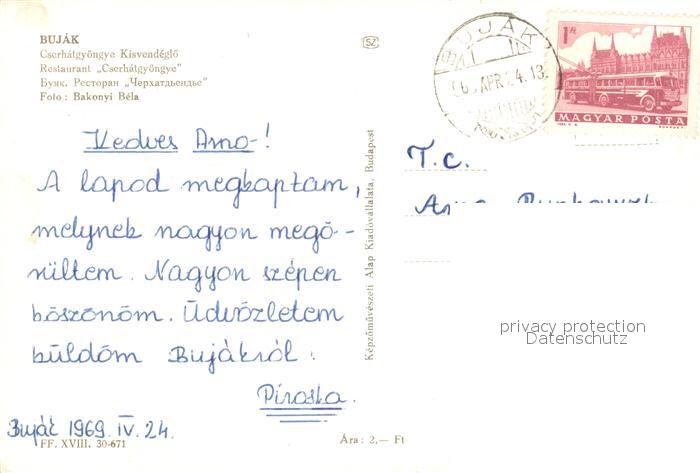 BUJÁK
Cserhátgyöngye Kisvendéglő
Restaurant „Cserhátgyöngye"
Буяк. Ресторан „Черхатдьендье"
Foto: Bakonyi Béla
SZ
Kedves Arno-!
A lapod megkaptam,
melynek nagyon megö-
rültem. Nagyon szépen
köszönöm. Üdvözletem
küldöm Bujákról.
Piroska.
Buják 1969. IV. 24.
FF. XVIII. 30-671
Ára: 2,— Ft
Képzőművészeti Alap Kiadóvállalata, Budapest
BUJÁK
APR 24. 13
1 Ft
MAGYAR POSTA
T.c.
privacy protection
Datenschutz